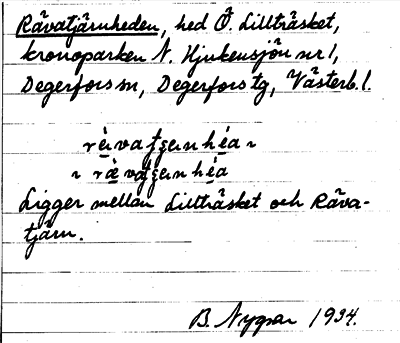 Rävatjärnheden, hed Ö. Lillträsket,
kronoparken N. Hjukensjön nr 1,
Degerfors sn, Degerfors tg, Västerb. l.
Ligger mellan Lillträsket och Räva-
tjärn.
B. Nygren 1934.